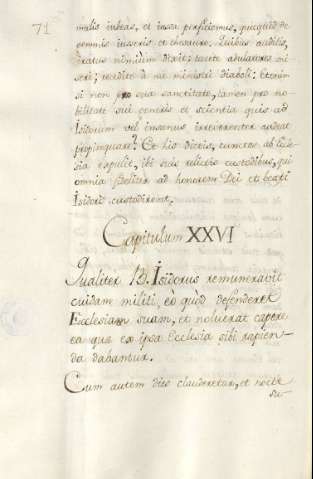 71
mulis indeas, et insea perficiemus, quicquid de
gemmis inseris et thesauro. Quibus auditis,
iratus nimium dixit; tacete adulatores mi-
seri; recedite à me ministri diaboli; Etenim
si non pro sua sanctitate, tamen pro no-
bilitate sui generis et scientia quis ad
Isidorum vel insanus irreverenter audeat
propinquare? Et his dictis, cunctos ab Eccle-
sia expulit, ibi suis relictis custodibus, qui
omnia fideliter ad honorem Dei et beati
Isidori custodirent.
Capitulum XXVI
Qualiter B. Isidorus remuneravit
cuidam militi, eò quod defenderet
Ecclesiam suam, et noluerat capere
ea quæ ex ipsa Ecclesia sibi rapien-
da dabantur.
Cum autem dies clauderetur, et nocte
su-